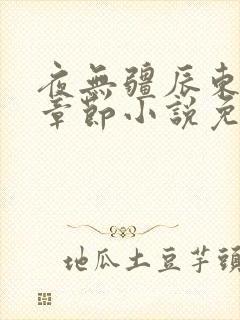 夜無疆辰東
章節小說免
地瓜土豆芋頭